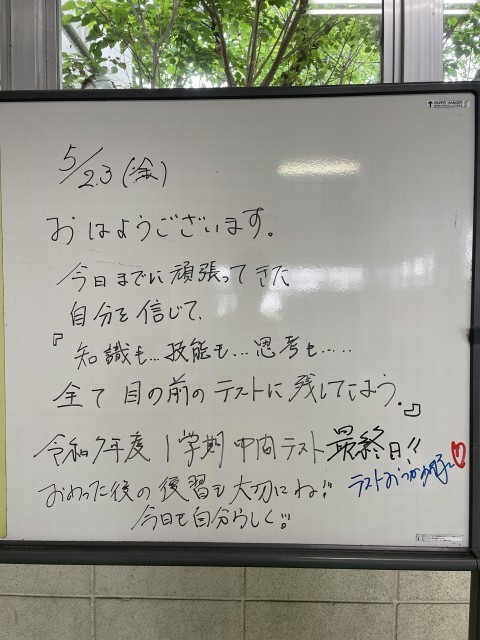 5/23(金)
おはようございます。
今日までに頑張ってきた
自分を信じて、
『知識も…技能も…思考も……
全て目の前のテストに残してこよう。』
令和7年度 1学期 中間テスト 最終日!!
おわった後の復習も大切にね!!
テストおつかれ
今日も自分らしく!!